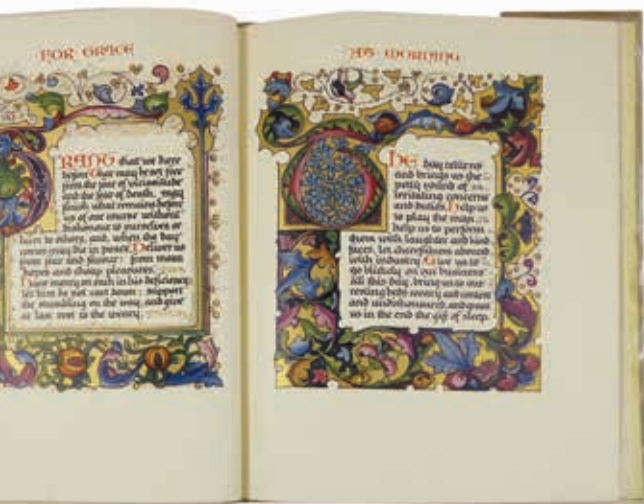 FOR GRACE
GRANT that we here
before Thee may be set free
from the fear of vicissitude
and the fear of death, may
finish what remains before
us of our course without
dishonour to ourselves or
hurt to others, and, when the day
comes may die in peace. Deliver us
from fear and favour: from mean
hopes and cheap pleasures.
Have mercy on each in his deficiency;
let him be not cast down: support
the stumbling on the way, and give
at last rest to the weary.
MORNING
THE day returns
and brings us the
petty round of
irritating concerns
and duties. Help us
to play the man,
help us to perform
them with laughter and kind
faces, let cheerfulness abound
with industry. Give us to
go blithely on our business
all this day, bring us to our
resting beds weary and content
and undishonoured, and grant
us in the end the gift of sleep.